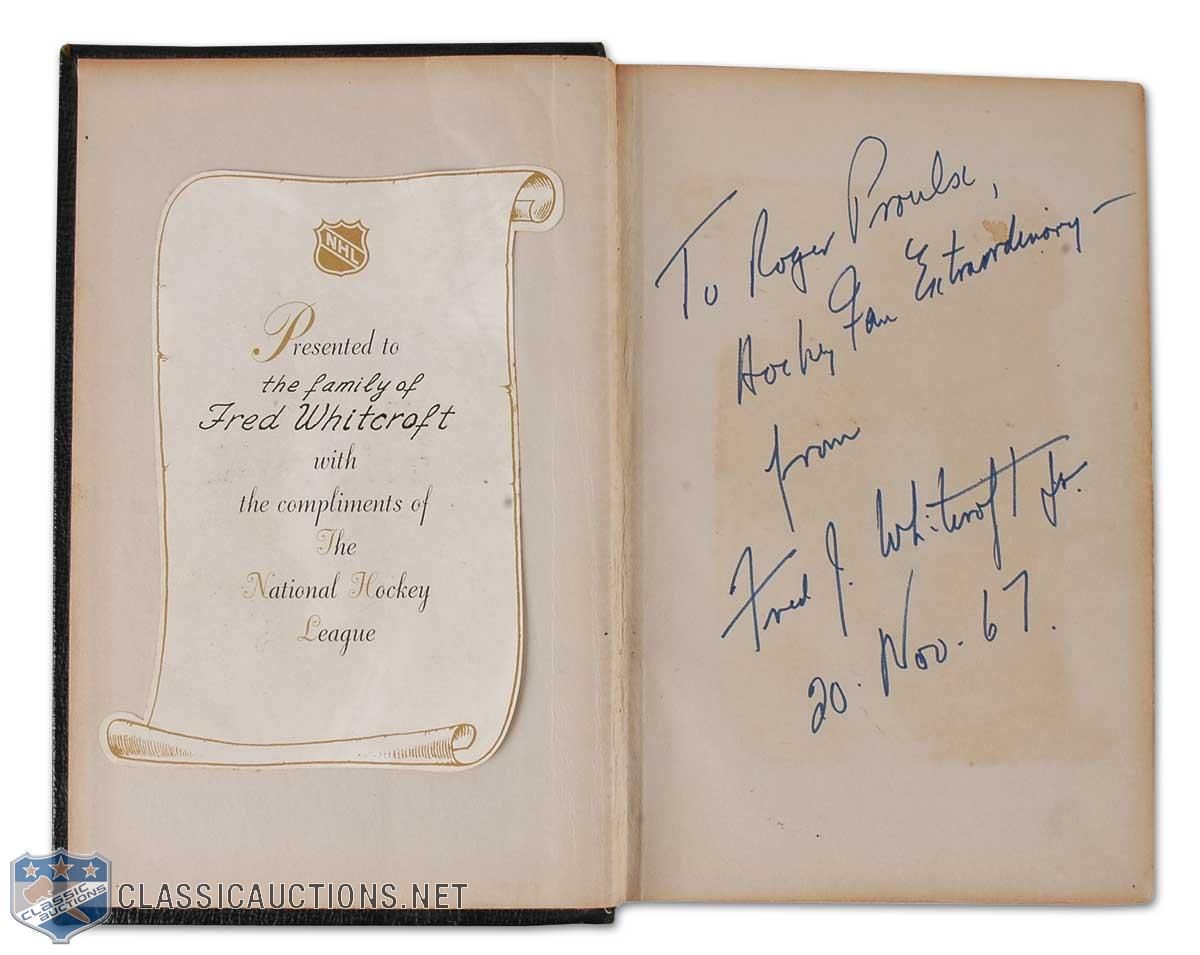 NHL
Presented to
the family of
Fred Whitcroft
with
the compliments of
The
National Hockey
League
To Roger Proulx,
Hockey Fan Extraordinary —
from
Fred J. Whitcroft Jr.
20. Nov. 67.
CLASSIC
AUCTIONS
CLASSICAUCTIONS.NET